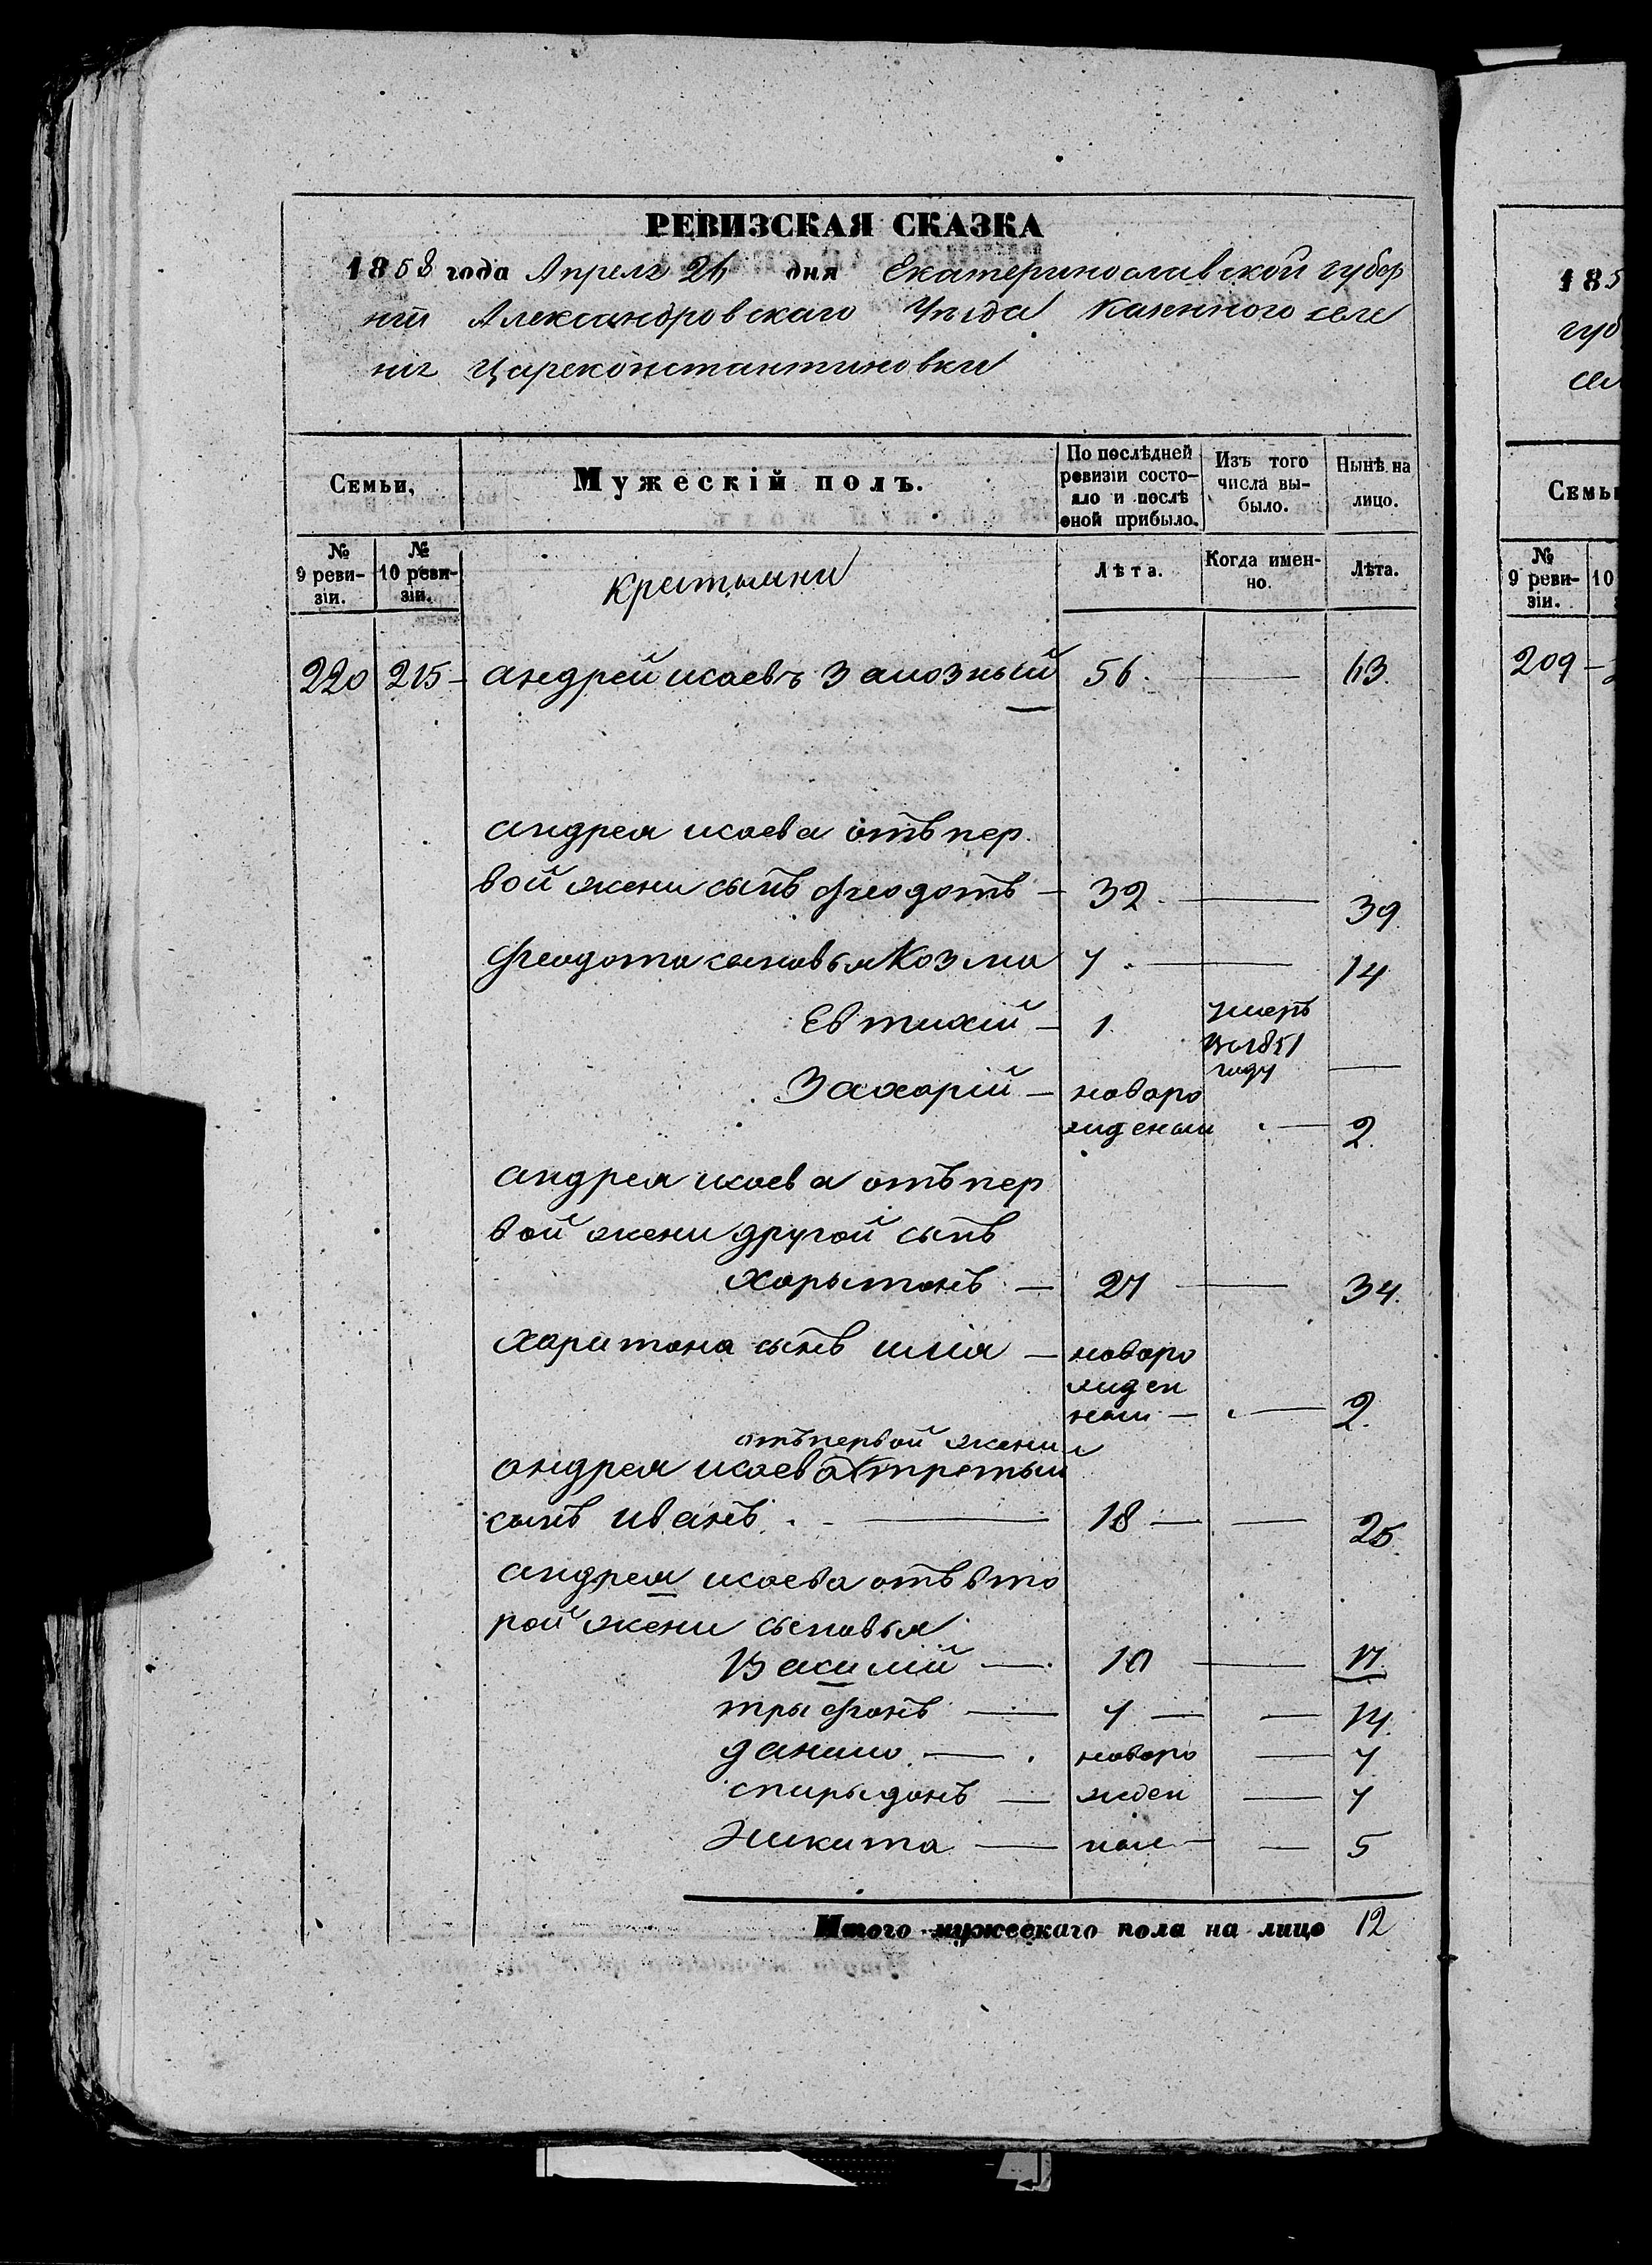 РЕВИЗСКАЯ СКАЗКА
1858 года Апреля 26 дня Екатеринославской губер
нiи Александровскаго Уѣзда Казенного селе
нiя Цареконстантиновки
Семьи,
Мужескiй полъ.
По послѣдней ревизiи состо-
яло и послѣ оной прибыло.
Изъ того числа вы-
было.
Нынѣ на лицо.
№ 9 реви-
зiи.
№ 10 реви-
зiи.
крестьяни
Лѣта.
Когда имен-
но.
Лѣта.
220 215 – андрей исаевъ Залозный 56. — 63.
андрея исаева отъ пер
вой жени сынъ феодотъ – 32. — 39
феодота сыновья Козма 7. — 14
Евтихiй – 1. умеръ
во 1851
году —
Захарiй – новоро
жденый — 2.
андрея исаева отъ пер
вой жени другой сынъ
харытонъ – 27 — 34.
харитона сынъ илiя – новоро
жден
ный – — 2.
отъ первой жени
андрея исаева третьий
сынъ иванъ. — 18 — — 25
андрея исаева отъ вто
рой жени сыновья
Василiй — 10 — 17
трыфонъ — 7 — — 14
данило — новоро — 7
спирыдонъ — жден — 7
Никита — ные — — 5
Итого мужескаго пола на лицо 12
185
губ
сел
Семьи
№ 9 реви-
зiи.
10
209 –